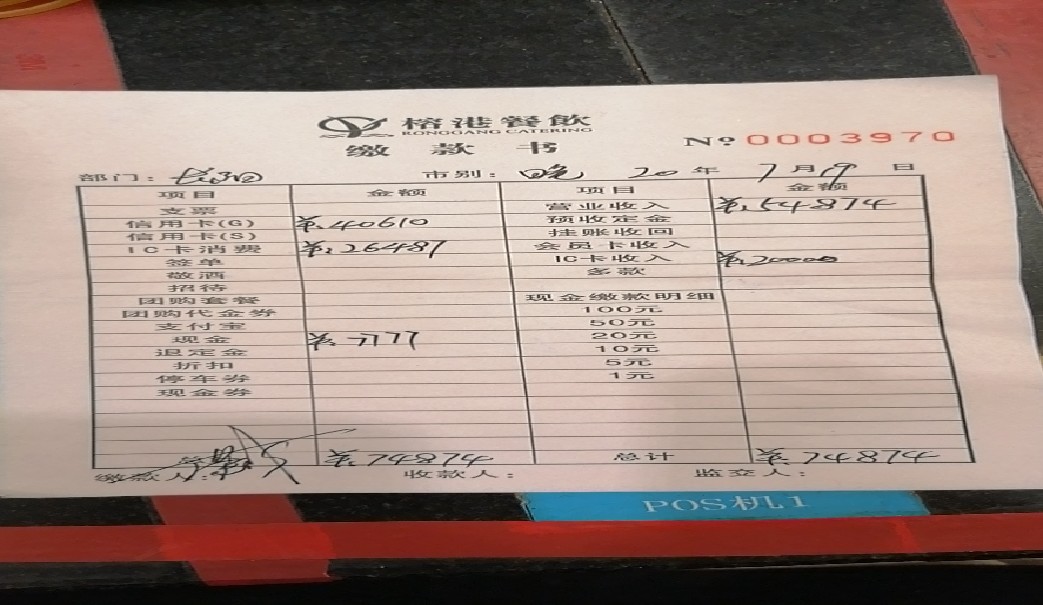 榕港餐飲
RONGGANG CATERING
缴款书
No 0003970
部门: 市别: 晚 20 年 7 月 19 日
项目 金额 项目 金额
支票 营业收入 ¥:54874
信用卡(G) ¥:40610 预收定金
信用卡(S) 挂账收回
IC卡消费 ¥:26487 会员卡收入
签单 IC卡收入 ¥:20000
敬酒 多款
招待
团购套餐 现金缴款明细
团购代金券 100元
支付宝 50元
现金 ¥:7777 20元
退定金 10元
折扣 5元
停车券 1元
现金券
¥:74874 总计 ¥:74874
缴款人: 收款人: 监交人:
POS机1